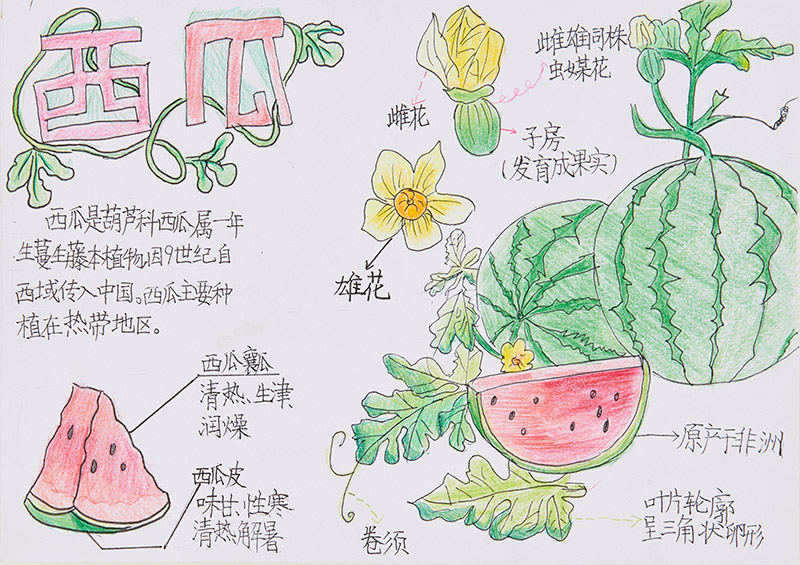 西瓜
西瓜是葫芦科西瓜属一年
生蔓生藤本植物,因9世纪自
西域传入中国。西瓜主要种
植在热带地区。
西瓜瓤
清热、生津
润燥
西瓜皮
味甘、性寒
清热解暑
雌花
雌雄同株
虫媒花
子房
(发育成果实)
雄花
原产于非洲
叶片轮廓
呈三角状卵形
卷须